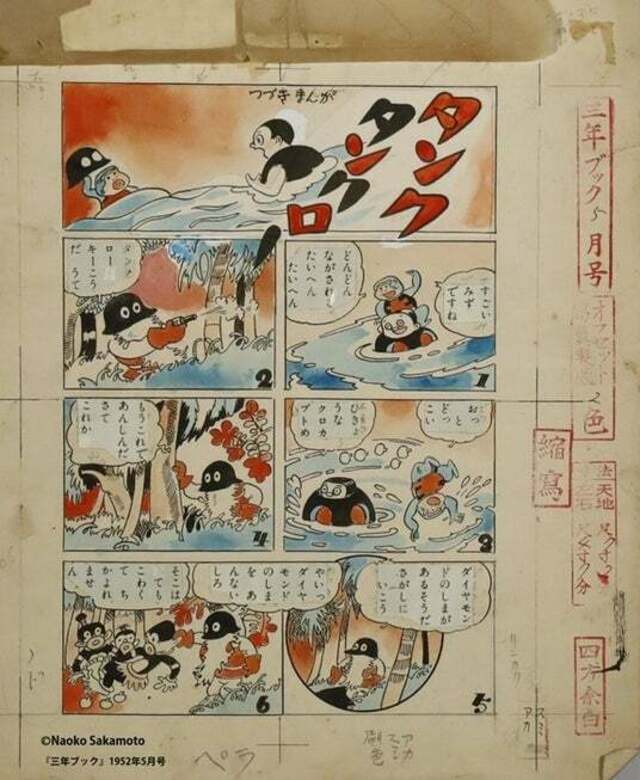 つづきまんが
タンク
タンク
ロー
すごい
みず
ですね
どんどん
たいへん
たいへん
1
タンク
ロー
キーこう
だ うて
2
おっ
とどっ
こい
ひきょ
うな
クロカ
ブトめ
3
もうこれで
あんしんだ
さて
これか
4
ダイヤモン
ドのしまが
あるそうだ
さがしに
いこう
5
やいっ
ダイヤ
モンド
のしま
を あ
んない
しろ
そこは
とても
こわく
てち
かよれ
ません
6
三年ブック5月号
オフセット
2色
縮寫
天地
四方余白
スミ
アカ
アカ
スミ
ペラ
©Naoko Sakamoto
『三年ブック』1952年5月号